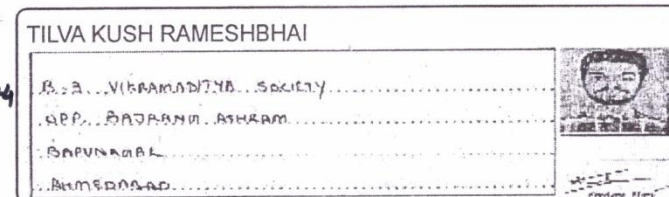 TILVA KUSH RAMESHBHAI
B-3 VIKRAMADITYA SOCIETY
OPP. BAJRANG ASHRAM
BAPUNAGAR
AHMEDABAD